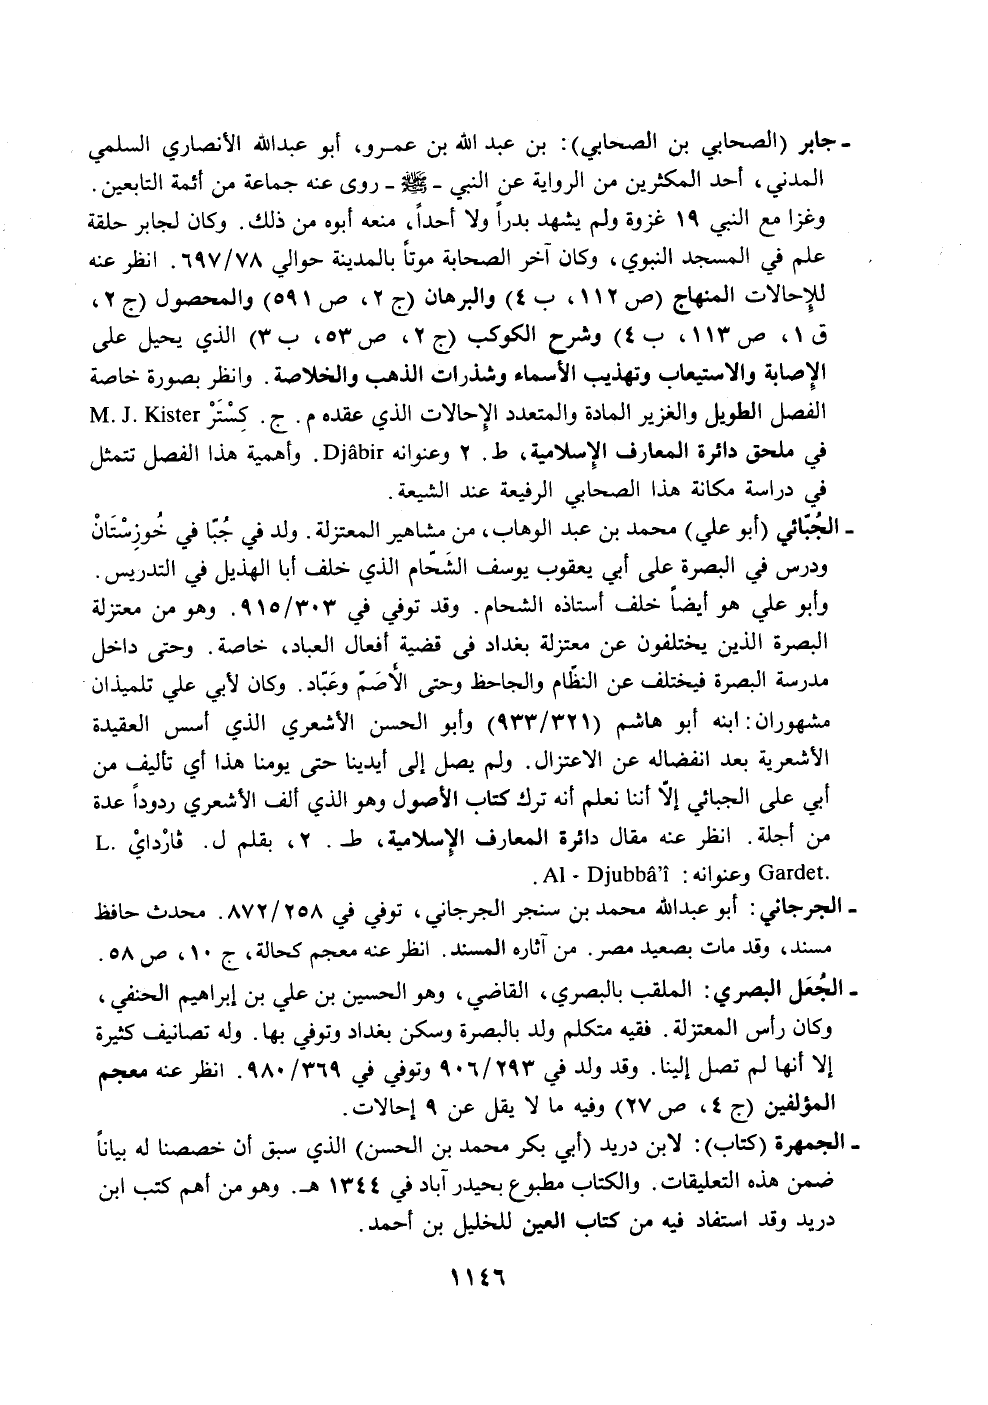 - جابر (الصحابي بن الصحابي): بن عبد الله بن عمرو، أبو عبدالله الأنصاري السلمي
المدني، أحد المكثرين من الرواية عن النبي - ﷺ - روى عنه جماعة من أئمة التابعين.
وغزا مع النبي ١٩ غزوة ولم يشهد بدراً ولا أحداً، منعه أبوه من ذلك. وكان لجابر حلقة
علم في المسجد النبوي، وكان آخر الصحابة موتاً بالمدينة حوالي ٦٩٧/٧٨. انظر عنه
للإحالات المنهاج (ص ١١٢، ب ٤) والبرهان (ج ٢، ص ٥٩١) والمحصول (ج ٢،
ق ١، ص ١١٣، ب ٤) وشرح الكوكب (ج ٢، ص ٥٣، ب ٣) الذي يحيل على
الإصابة والاستيعاب وتهذيب الأسماء وشذرات الذهب والخلاصة. وانظر بصورة خاصة
الفصل الطويل والغزير المادة والمتعدد الإحالات الذي عقده م. ج. كِسْتَرْ M. J. Kister
في ملحق دائرة المعارف الإسلامية، ط. ٢ وعنوانه Djâbir. وأهمية هذا الفصل تتمثل
في دراسة مكانة هذا الصحابي الرفيعة عند الشيعة.
- الجُبّائي (أبو علي) محمد بن عبد الوهاب، من مشاهير المعتزلة. ولد في جُبّا في خُوزِسْتَانْ
ودرس في البصرة على أبي يعقوب يوسف الشَحّام الذي خلف أبا الهذيل في التدريس.
وأبو علي هو أيضاً خلف أستاذه الشحام. وقد توفي في ٩١٥/٣٠٣. وهو من معتزلة
البصرة الذين يختلفون عن معتزلة بغداد فى قضية أفعال العباد، خاصة. وحتى داخل
مدرسة البصرة فيختلف عن النظّام والجاحظ وحتى الأَصَمّ وعَبّاد. وكان لأبي علي تلميذان
مشهوران: ابنه أبو هاشم (٩٣٣/٣٢١) وأبو الحسن الأشعري الذي أسس العقيدة
الأشعرية بعد انفضاله عن الاعتزال. ولم يصل إلى أيدينا حتى يومنا هذا أي تأليف من
أبي على الجبائي إلاّ أننا نعلم أنه ترك كتاب الأصول وهو الذي ألف الأشعري ردوداً عدة
من أجلة. انظر عنه مقال دائرة المعارف الإسلامية، ط. ٢، بقلم ل. ڤارْدايْ L.
Gardet. وعنوانه: Al - Djubbâ'î.
- الجرجاني: أبو عبدالله محمد بن سنجر الجرجاني، توفي في ٨٧٢/٢٥٨. محدث حافظ
مسند، وقد مات بصعيد مصر. من آثاره المسند. انظر عنه معجم كحالة، ج ١٠، ص ٥٨.
- الجُعَل البصري: الملقب بالبصري، القاضي، وهو الحسين بن علي بن إبراهيم الحنفي،
وكان رأس المعتزلة. فقيه متكلم ولد بالبصرة وسكن بغداد وتوفي بها. وله تصانيف كثيرة
إلا أنها لم تصل إلينا. وقد ولد في ٩٠٦/٢٩٣ وتوفي في ٩٨٠/٣٦٩. انظر عنه معجم
المؤلفين (ج ٤، ص ٢٧) وفيه ما لا يقل عن ٩ إحالات.
- الجمهرة (كتاب): لابن دريد (أبي بكر محمد بن الحسن) الذي سبق أن خصصنا له بياناً
ضمن هذه التعليقات. والكتاب مطبوع بحيدر آباد في ١٣٤٤ هـ. وهو من أهم كتب ابن
دريد وقد استفاد فيه من كتاب العين للخليل بن أحمد.
١١٤٦